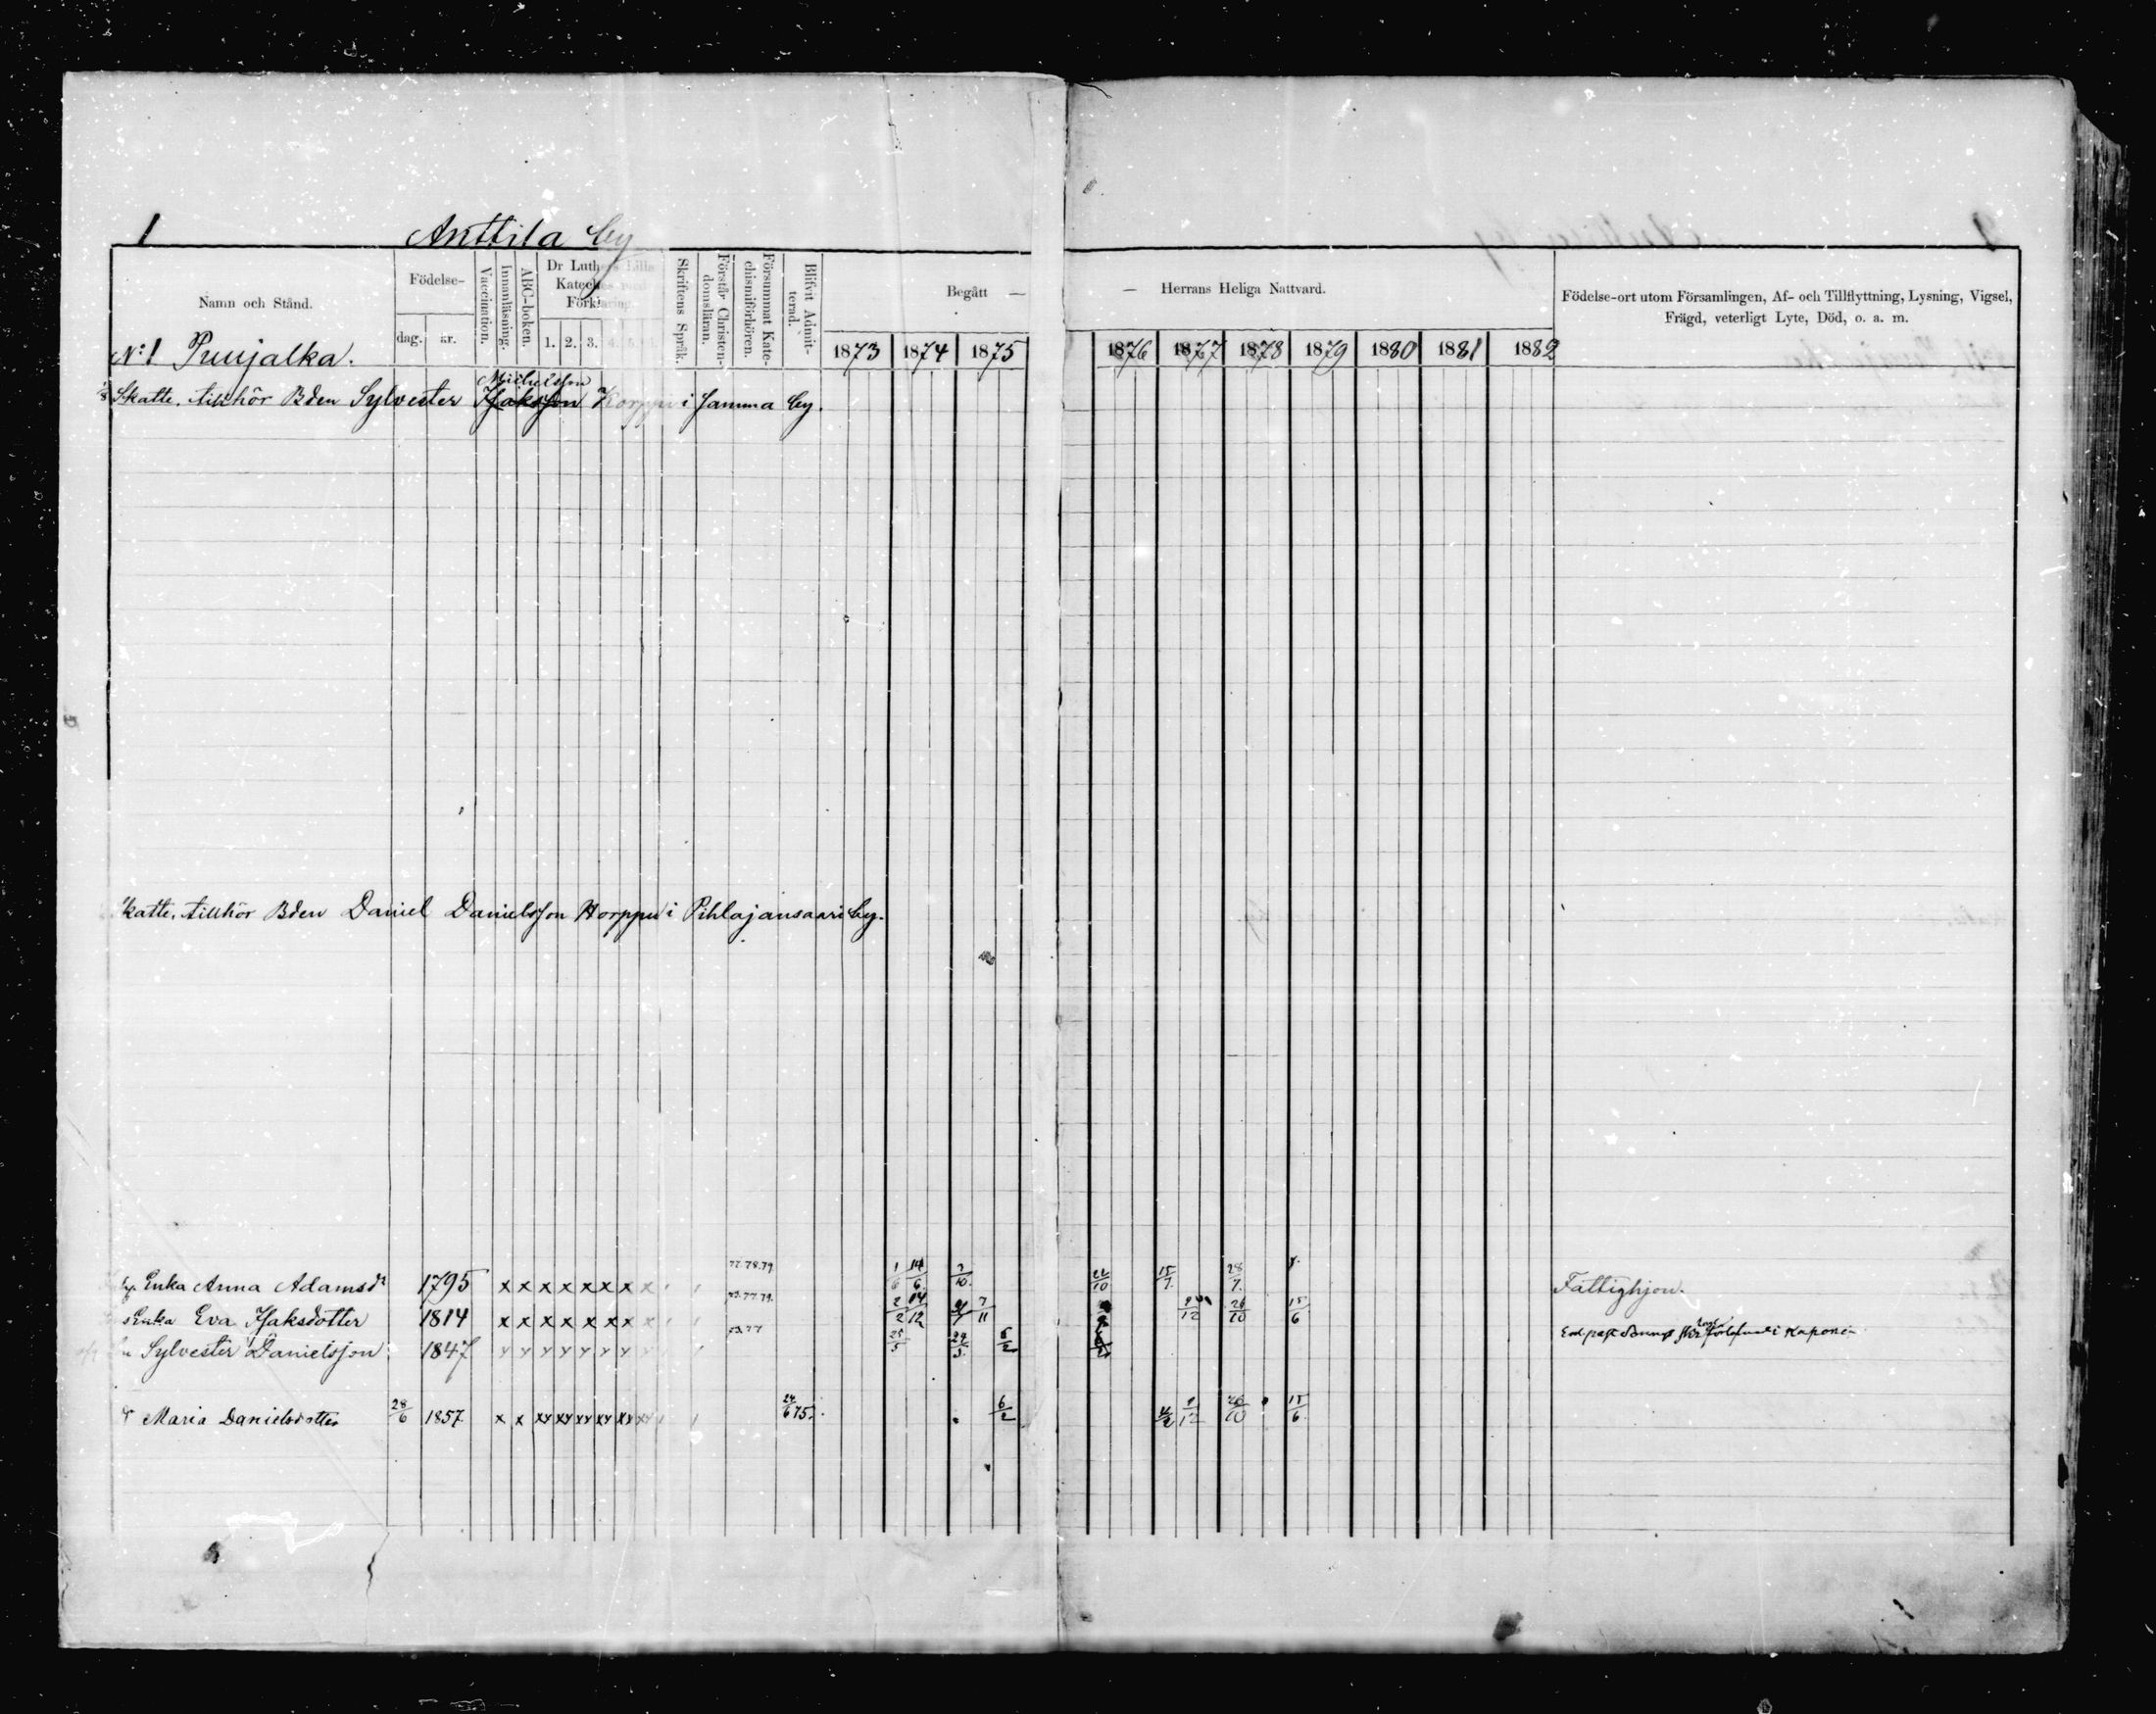 1 Anttila by
Namn och Stånd.
Födelse-
dag. år.
Vaccination.
Innanläsning.
ABC-boken.
Dr Luthers Lilla
Kateches med
Förklaring.
1. 2. 3. 4. 5.
Skriftens Språk.
Förstår Christen-
domsläran.
Försummat Kate-
chismiförhören.
Blifvit Admit-
terad.
Begått —
— Herrans Heliga Nattvard.
Födelse-ort utom Församlingen, Af- och Tillflyttning, Lysning, Vigsel,
Frägd, veterligt Lyte, Död, o. a. m.
1873 1874 1875 1876 1877 1878 1879 1880 1881 1882
N:1 Puujalka.
Michelsson
Skatte, tillhör Bden Sylvester Isaksson Korppu i samma by.
katte, tillhör Bden Daniel Danielsson Horppu i Pihlajansaari by.
77.78.79
Enka Anna Adamsdr 1795 x x x x x x x x 1/6 14/6 3/10 22/10 15/7 28/7 Fattighjon.
77.79.
Enka Eva Isaksdotter 1814 x x x x x x x x 2/2 14/12 7/11 9/12 26/10 15/6
73.77
Sylvester Danielsson 1847 25/5 6/2 i Kaponen
Maria Danielsdotter 28/6 1857 x x xx xx xx xx xx xx 24/6 75. 6/2 9/12 26/10 15/6